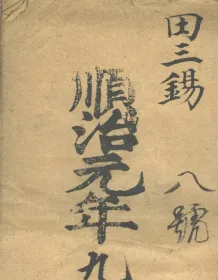 田三錫 八號
順治元年九